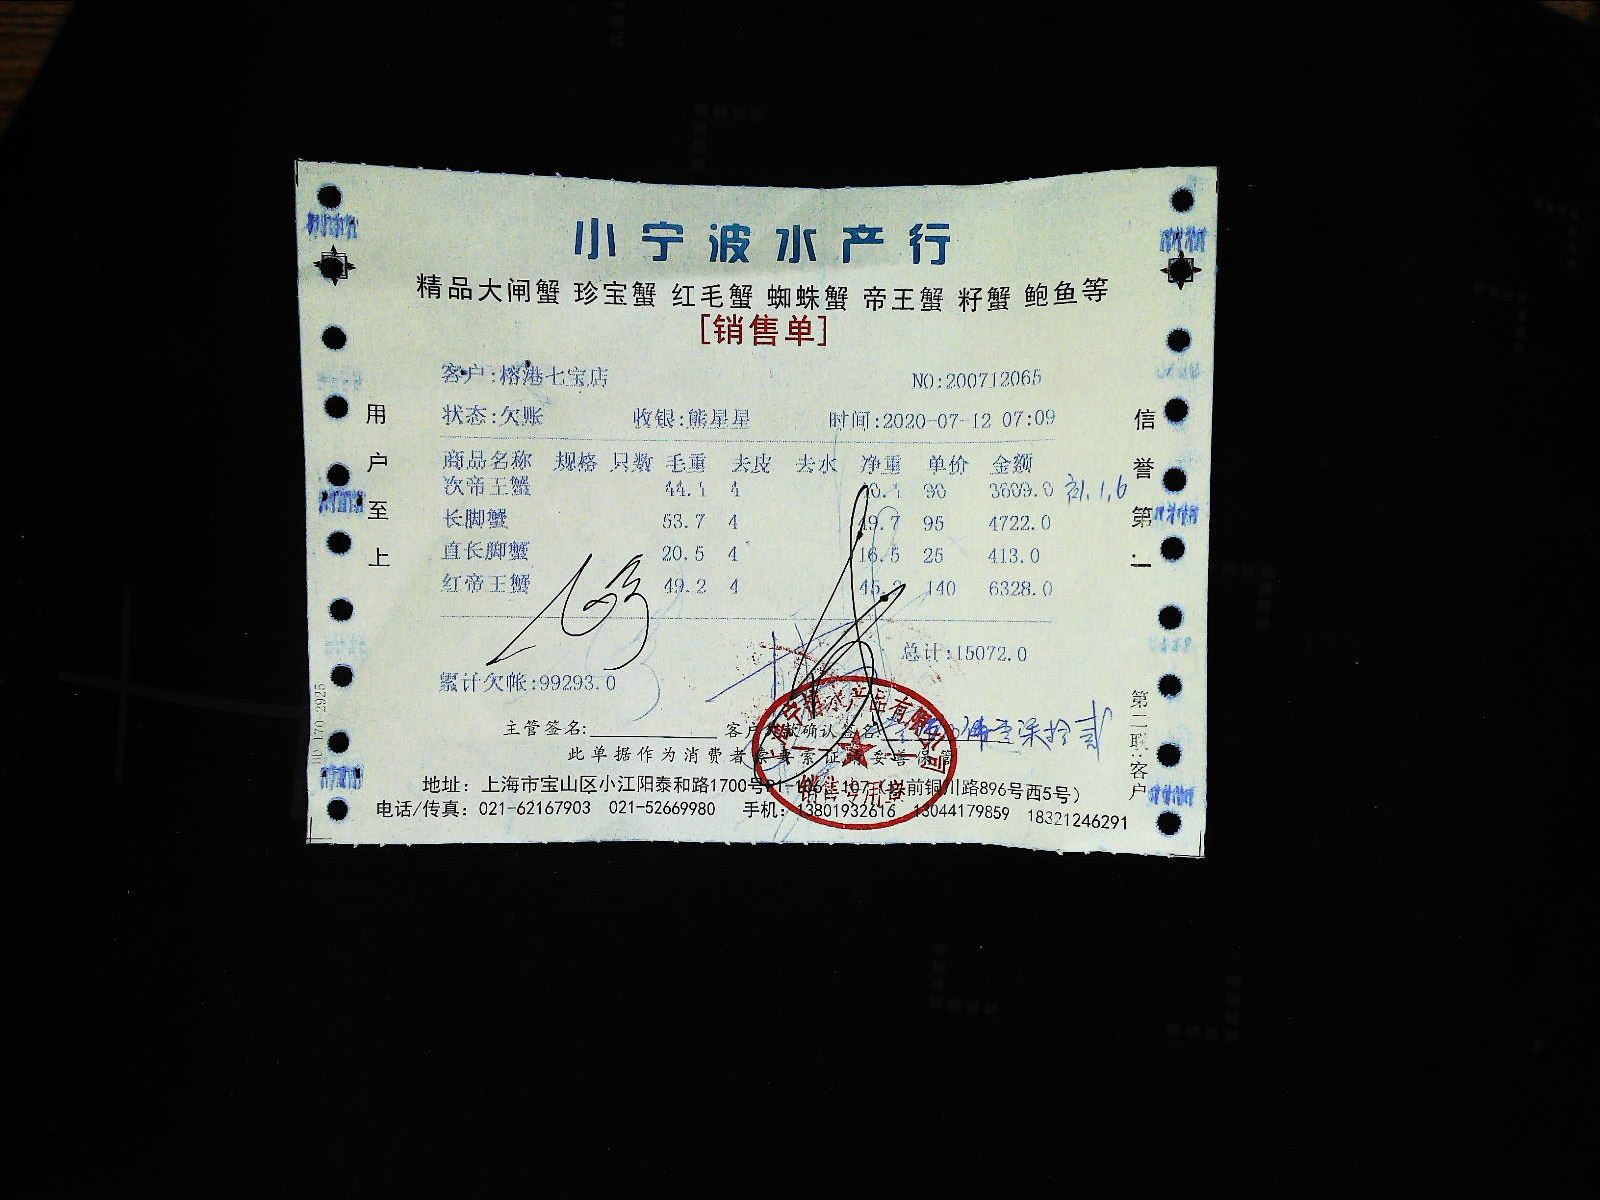 小宁波水产行
精品大闸蟹 珍宝蟹 红毛蟹 蜘蛛蟹 帝王蟹 籽蟹 鲍鱼等
[销售单]
客户:榕港七宝店 NO:200712065
状态:欠账 收银:熊星星 时间:2020-07-12 07:09
商品名称 规格 只数 毛重 去皮 去水 净重 单价 金额
次帝王蟹 44.1 4 40.1 90 3609.0
长脚蟹 53.7 4 49.7 95 4722.0
直长脚蟹 20.5 4 16.5 25 413.0
红帝王蟹 49.2 4 45.2 140 6328.0
总计:15072.0
累计欠帐:99293.0
主管签名: 客户 确认签名:
此单据作为消费者 索证 妥善保管
地址：上海市宝山区小江阳泰和路1700号 107 前铜川路896号西5号）
电话/传真：021-62167903 021-52669980 手机：13801932616 13044179859 18321246291
用户至上
信誉第一
第二联:客户
销售专用章